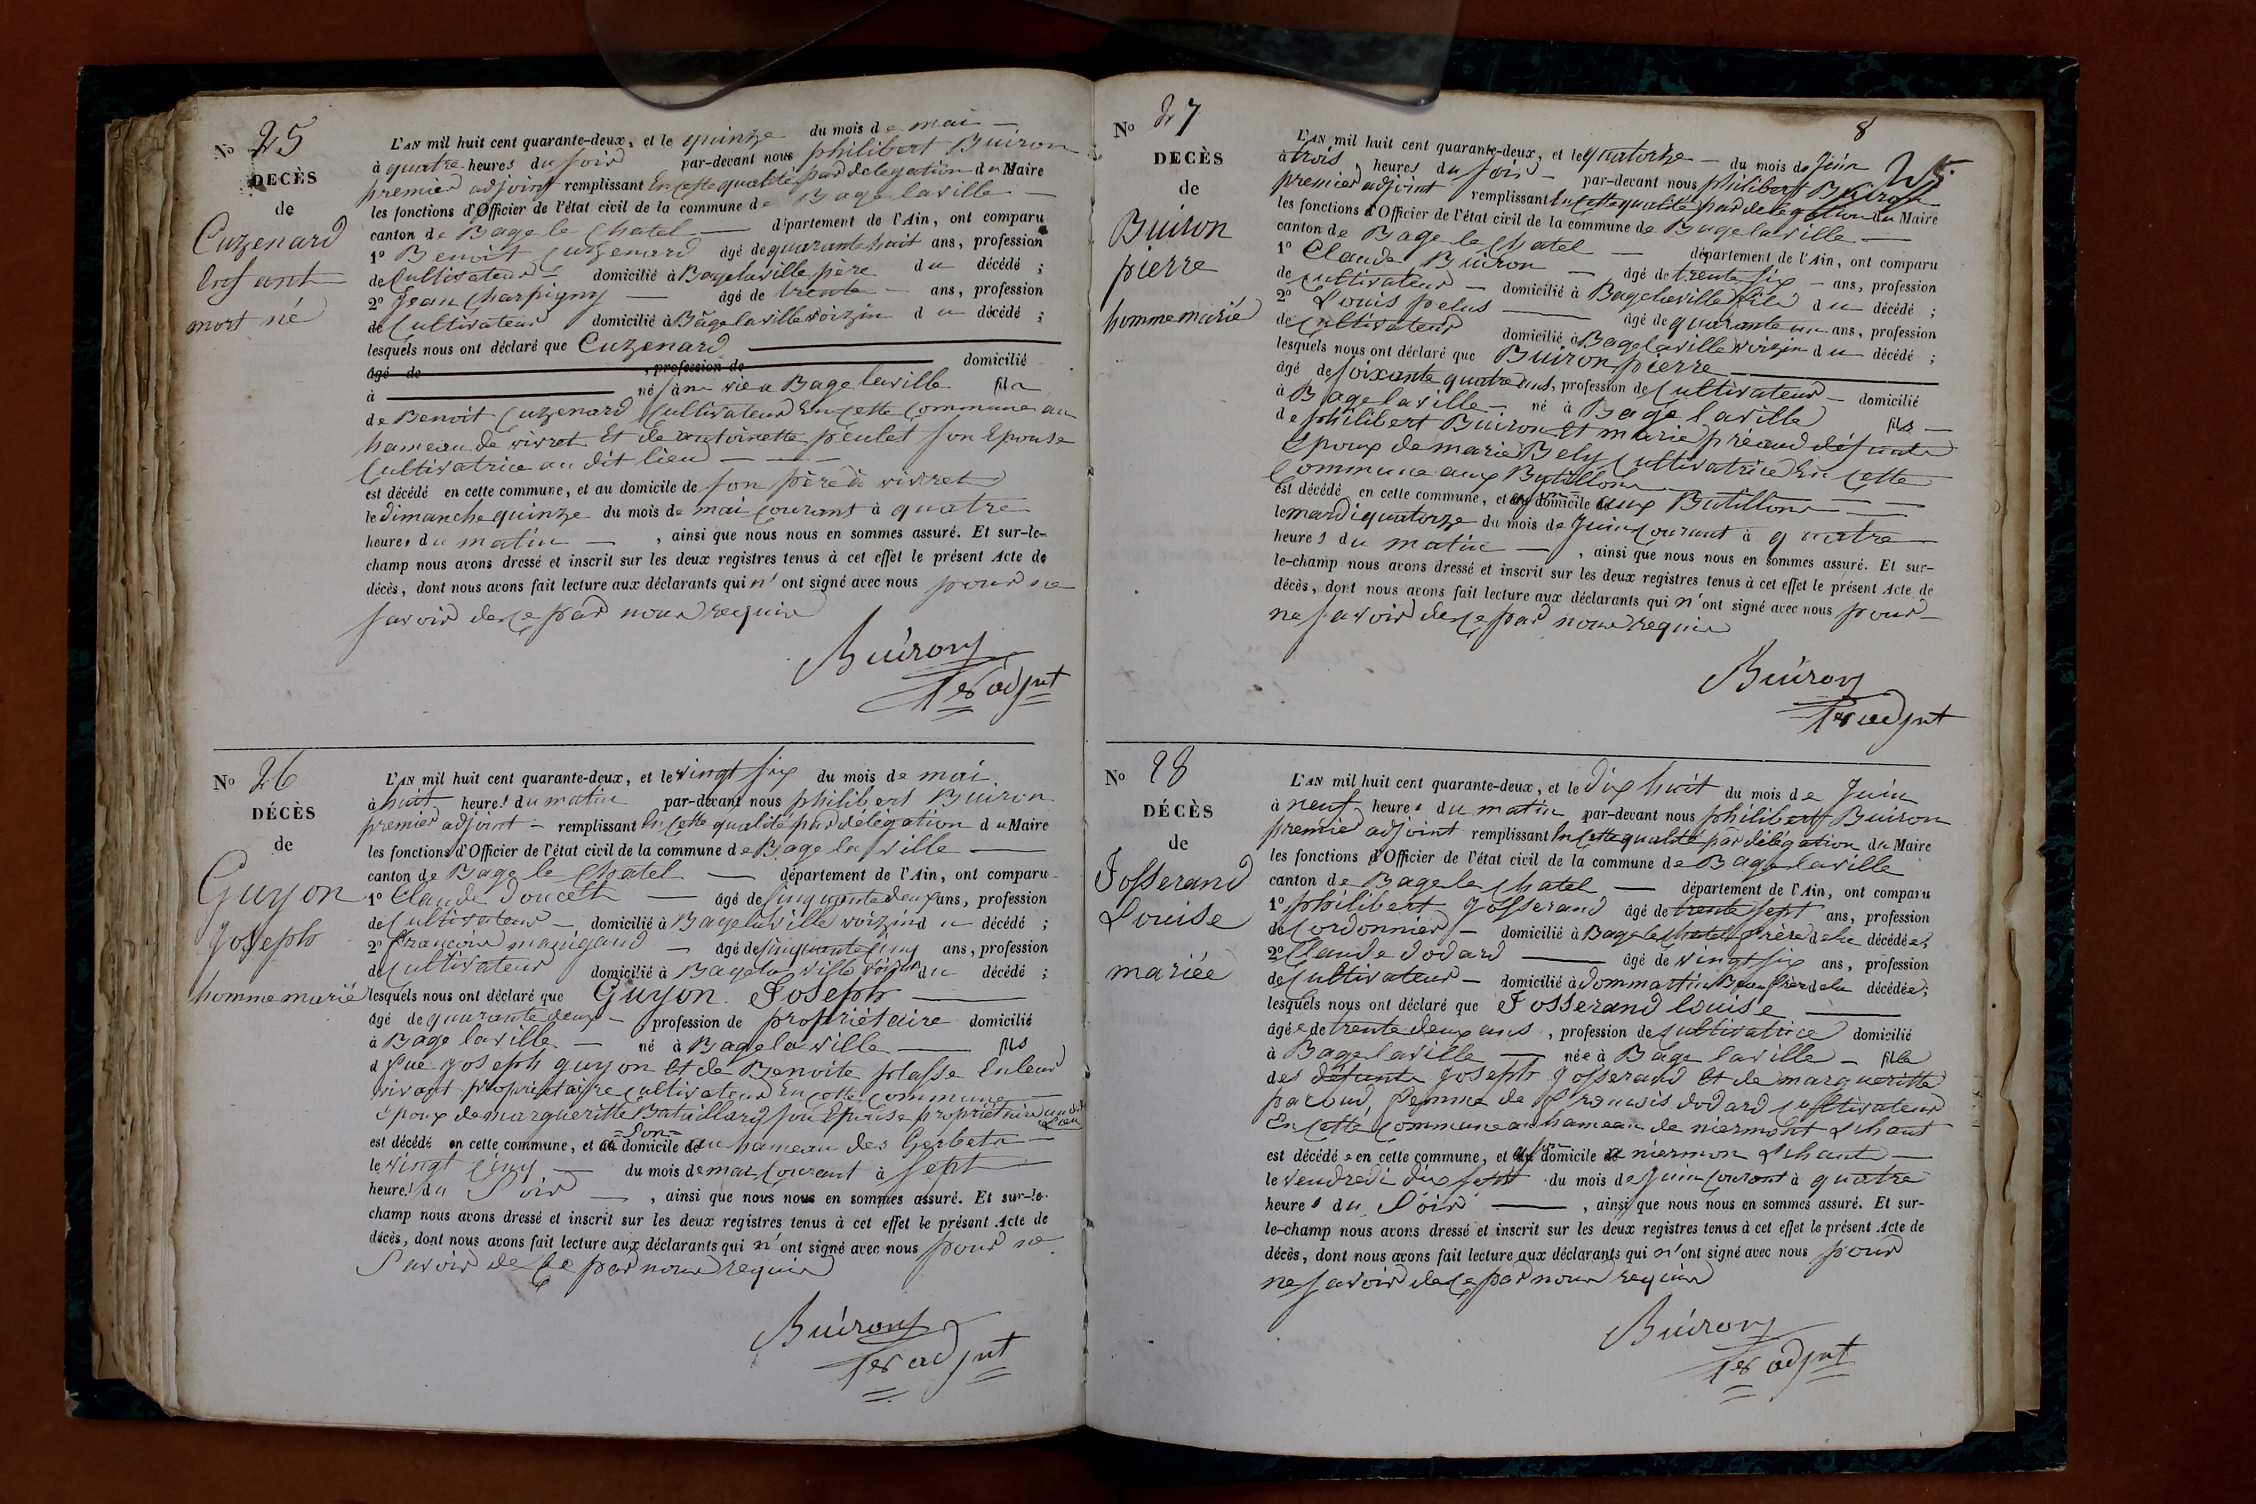 No 25
DECÈS
de
Cuzenard
Enfant
mort né
L'AN mil huit cent quarante-deux, et le quinze du mois de mai
à quatre heures du soir par-devant nous philibert Buiron
premier adjoint remplissant En cette qualité par délégation du Maire
les fonctions d'Officier de l'état civil de la commune de Bage la ville
canton de Bage le Chatel département de l'Ain, ont comparu
1o Benoit Cuzenard âgé de quarante huit ans, profession
de Cultivateur domicilié à Bagelaville père du décédé ;
2o Jean Charpigny âgé de trente ans, profession
de Cultivateur domicilié à Bâgelaville voizin du décédé ;
lesquels nous ont déclaré que Cuzenard
âgé de , profession de domicilié
à né sans vie a Bage laville fils
de Benoit Cuzenard Cultivateur En cette Commune au
hameau de vivret Et de antoinette peulet son Epouse
Cultivatrice au dit lieu
est décédé en cette commune, et au domicile de son père à vivret
le dimanche quinze du mois de mai Courant à quatre
heures du matin , ainsi que nous nous en sommes assuré. Et sur-le-
champ nous avons dressé et inscrit sur les deux registres tenus à cet effet le présent Acte de
décès, dont nous avons fait lecture aux déclarants qui n'ont signé avec nous pour ne
savoir de Ce par nous requis
Buiron
1er adjnt
No 26
DÉCÈS
de
Guyon
Joseph
homme marié
L'AN mil huit cent quarante-deux, et le vingt six du mois de mai
à huit heures du matin par-devant nous philibert Buiron
premier adjoint remplissant En Cette qualité par délégation du Maire
les fonctions d'Officier de l'état civil de la commune de Bage la ville
canton de Bage le Chatel département de l'Ain, ont comparu
1o Claude Doucet âgé de Cinquante deux ans, profession
de Cultivateur domicilié à Bagelaville voizin du décédé ;
2o françois mazuyaud âgé de Cinquante Cinq ans, profession
de Cultivateur domicilié à Bagela ville voizin du décédé ;
lesquels nous ont déclaré que Guyon Joseph
âgé de quarante deux , profession de propriétaire domicilié
à Bage laville né à Bagelaville fils
d feue Joseph guyon Et de Benoite plasse En leur
vivant propriétaire cultivateur En cette commune
époux de margueritte Batuillard son Epouse propriétaire au dit
Lieu
est décédé en cette commune, et au =Son= domicile de au hameau des Gerbets
le vingt Cinq du mois de mai Courant à sept
heures du Soir , ainsi que nous nous en sommes assuré. Et sur-le-
champ nous avons dressé et inscrit sur les deux registres tenus à cet effet le présent Acte de
décès, dont nous avons fait lecture aux déclarants qui n'ont signé avec nous pour ne
Savoir de Ce par nous requis
Buiron
1er adjnt
8
No 27
DECÈS
de
Buiron
pierre
homme marié
L'AN mil huit cent quarante-deux, et le quatorze du mois de Juin
à trois heures du soir par-devant nous philibert Buiron
premier adjoint remplissant En Cette qualité par délégation du Maire
les fonctions d'Officier de l'état civil de la commune de Bage la ville
canton de Bage le Chatel département de l'Ain, ont comparu
1o Claude Buiron âgé de trente six ans, profession
de Cultivateur domicilié à Bagelaville fils du décédé ;
2o Louis pelus âgé de quarante un ans, profession
de Cultivateur domicilié à Bagelaville voizin du décédé ;
lesquels nous ont déclaré que Buiron pierre
âgé de soixante quatre ans, profession de Cultivateur domicilié
à Bagelaville né à Bage laville fils
de philibert Buiron Et marie préaud défunts
Epoux de marie Bely Cultivatrice En Cette
Commune aux Butillons
est décédé en cette commune, et domicile aux Butillons
le mardi quatorze du mois de Juin Courant à quatre
heures du matin , ainsi que nous nous en sommes assuré. Et sur-
le-champ nous avons dressé et inscrit sur les deux registres tenus à cet effet le présent Acte de
décès, dont nous avons fait lecture aux déclarants qui n'ont signé avec nous pour
ne savoir de Ce par nous requis
Buiron
1er adjnt
No 28
DÉCÈS
de
Josserand
Louise
mariée
L'AN mil huit cent quarante-deux, et le Dix huit du mois de Juin
à neuf heures du matin par-devant nous philibert Buiron
premier adjoint remplissant En Cette qualité par délégation du Maire
les fonctions d'Officier de l'état civil de la commune de Bage la ville
canton de Bage le Chatel département de l'Ain, ont comparu
1o philibert Josserand âgé de trente sept ans, profession
de Cordonnier domicilié à Bage le Chatel frère de la décédée ;
2o Claude dodard âgé de vingt six ans, profession
de Cultivateur domicilié à dommartin Beau frère de la décédée ;
lesquels nous ont déclaré que Josserand louise
âgée de trente deux ans , profession de Cultivatrice domicilié
à Bage laville née à Bâge laville fille
des défunts Joseph Josserand Et de margueritte
parbud femme de françois dodard Cultivateur
En Cette Commune au hameau de niermont d'haut
est décédée en cette commune, et son domicile a niermon d'haut
le vendredi dix sept du mois de Juin Courant à quatre
heures du Soir , ainsi que nous nous en sommes assuré. Et sur-
le-champ nous avons dressé et inscrit sur les deux registres tenus à cet effet le présent Acte de
décès, dont nous avons fait lecture aux déclarants qui n'ont signé avec nous pour
ne savoir de Ce par nous requis
Buiron
1er adjnt